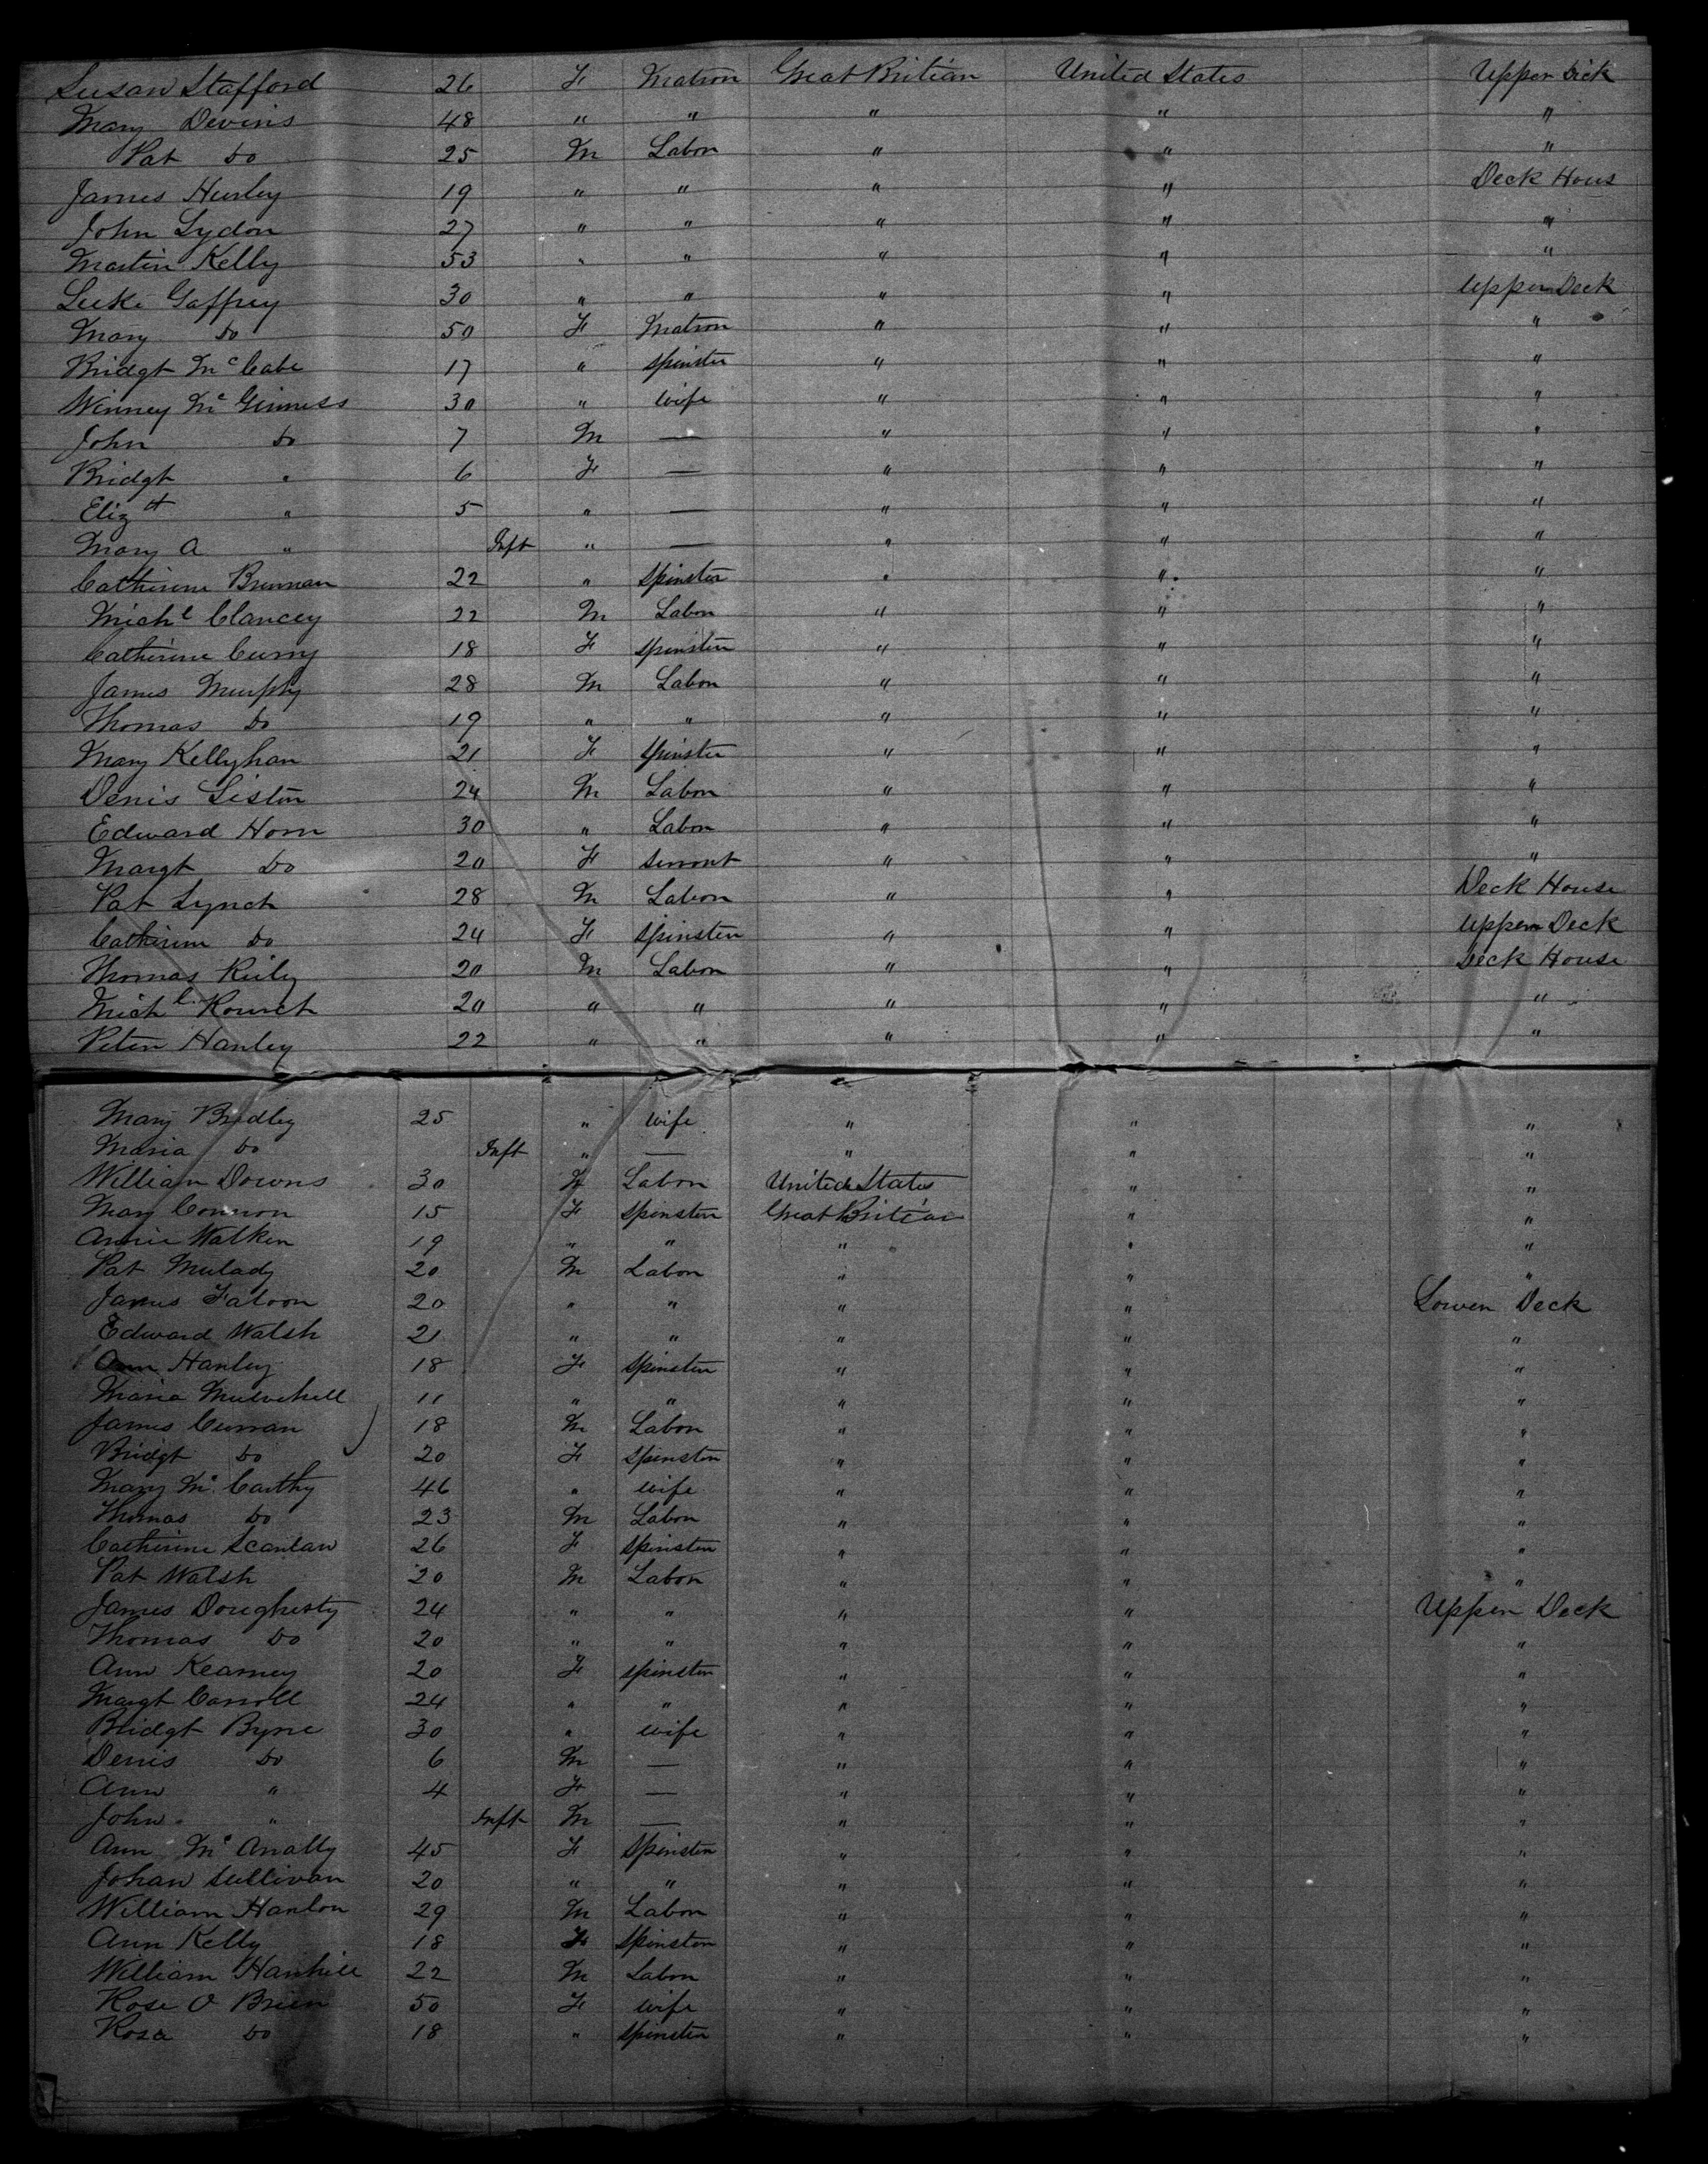 Susan Stafford 26 F Matron Great Britian United States Upper Deck
Mary Devins 48 " " " " "
Pat Do 25 M Labor " " "
James Hurley 19 " " " " Deck Hous
John Lydon 27 " " " " "
Martin Kelly 53 " " " " "
Luke Gaffney 30 " " " " Upper Deck
Mary Do 50 F Matron " " "
Bridgt McCabe 17 " spinster " " "
Winney McGinness 30 " wife " " "
John Do 7 M — " " "
Bridgt " 6 F — " " "
Elizth " 5 " — " " "
Mary A " Inft " — " " "
Catherine Brennan 22 " spinster " " "
Michl Clancey 22 M Labor " " "
Catherine Curry 18 F spinster " " "
James Murphy 28 M Labor " " "
Thomas Do 19 " " " " "
Mary Kellyhan 21 F spinster " " "
Denis Liston 24 M Labor " " "
Edward Horn 30 " Labor " " "
Margt Do 20 F servont " " "
Pat Lynch 28 M Labor " " Deck House
Catherine Do 24 F spinster " " Upper Deck
Thomas Reily 20 M Labor " " Deck House
Michl 20 " " " " "
Peter Hanley 22 " " " " "
Mary Bradley 25 " wife " " "
Maria Do Inft " — " " "
William Downs 30 M Labor United States " "
Mary Connon 15 F spinster Great Britian " "
Annie Walker 19 " " " " "
Pat Mulady 20 M Labor " " "
James Faloon 20 " " " " Lower Deck
Edward Walsh 21 " " " " "
Ann Hanley 18 F spinster " " "
Maria Mulvehill 11 " " " " "
James Curran 18 M Labor " " "
Bridgt Do 20 F spinster " " "
Mary McCarthy 46 " wife " " "
Thomas Do 23 M Labor " " "
Catherine Scanlan 26 F spinster " " "
Pat Walsh 20 M Labor " " "
James Dougherty 24 " " " " Upper Deck
Thomas Do 20 " " " " "
Ann Kearney 20 F spinster " " "
Margt Carroll 24 " " " " "
Bridgt Byrne 30 " wife " " "
Denis Do 6 M — " " "
Ann " 4 F — " " "
John " Inft M — " " "
Ann McAnally 45 F spinster " " "
Johan Sullivan 20 " " " " "
William Hanlon 29 M Labor " " "
Ann Kelly 18 F spinster " " "
William 22 M Labor " " "
Rose O Brien 50 F wife " " "
Rosa Do 18 " spinster " " "